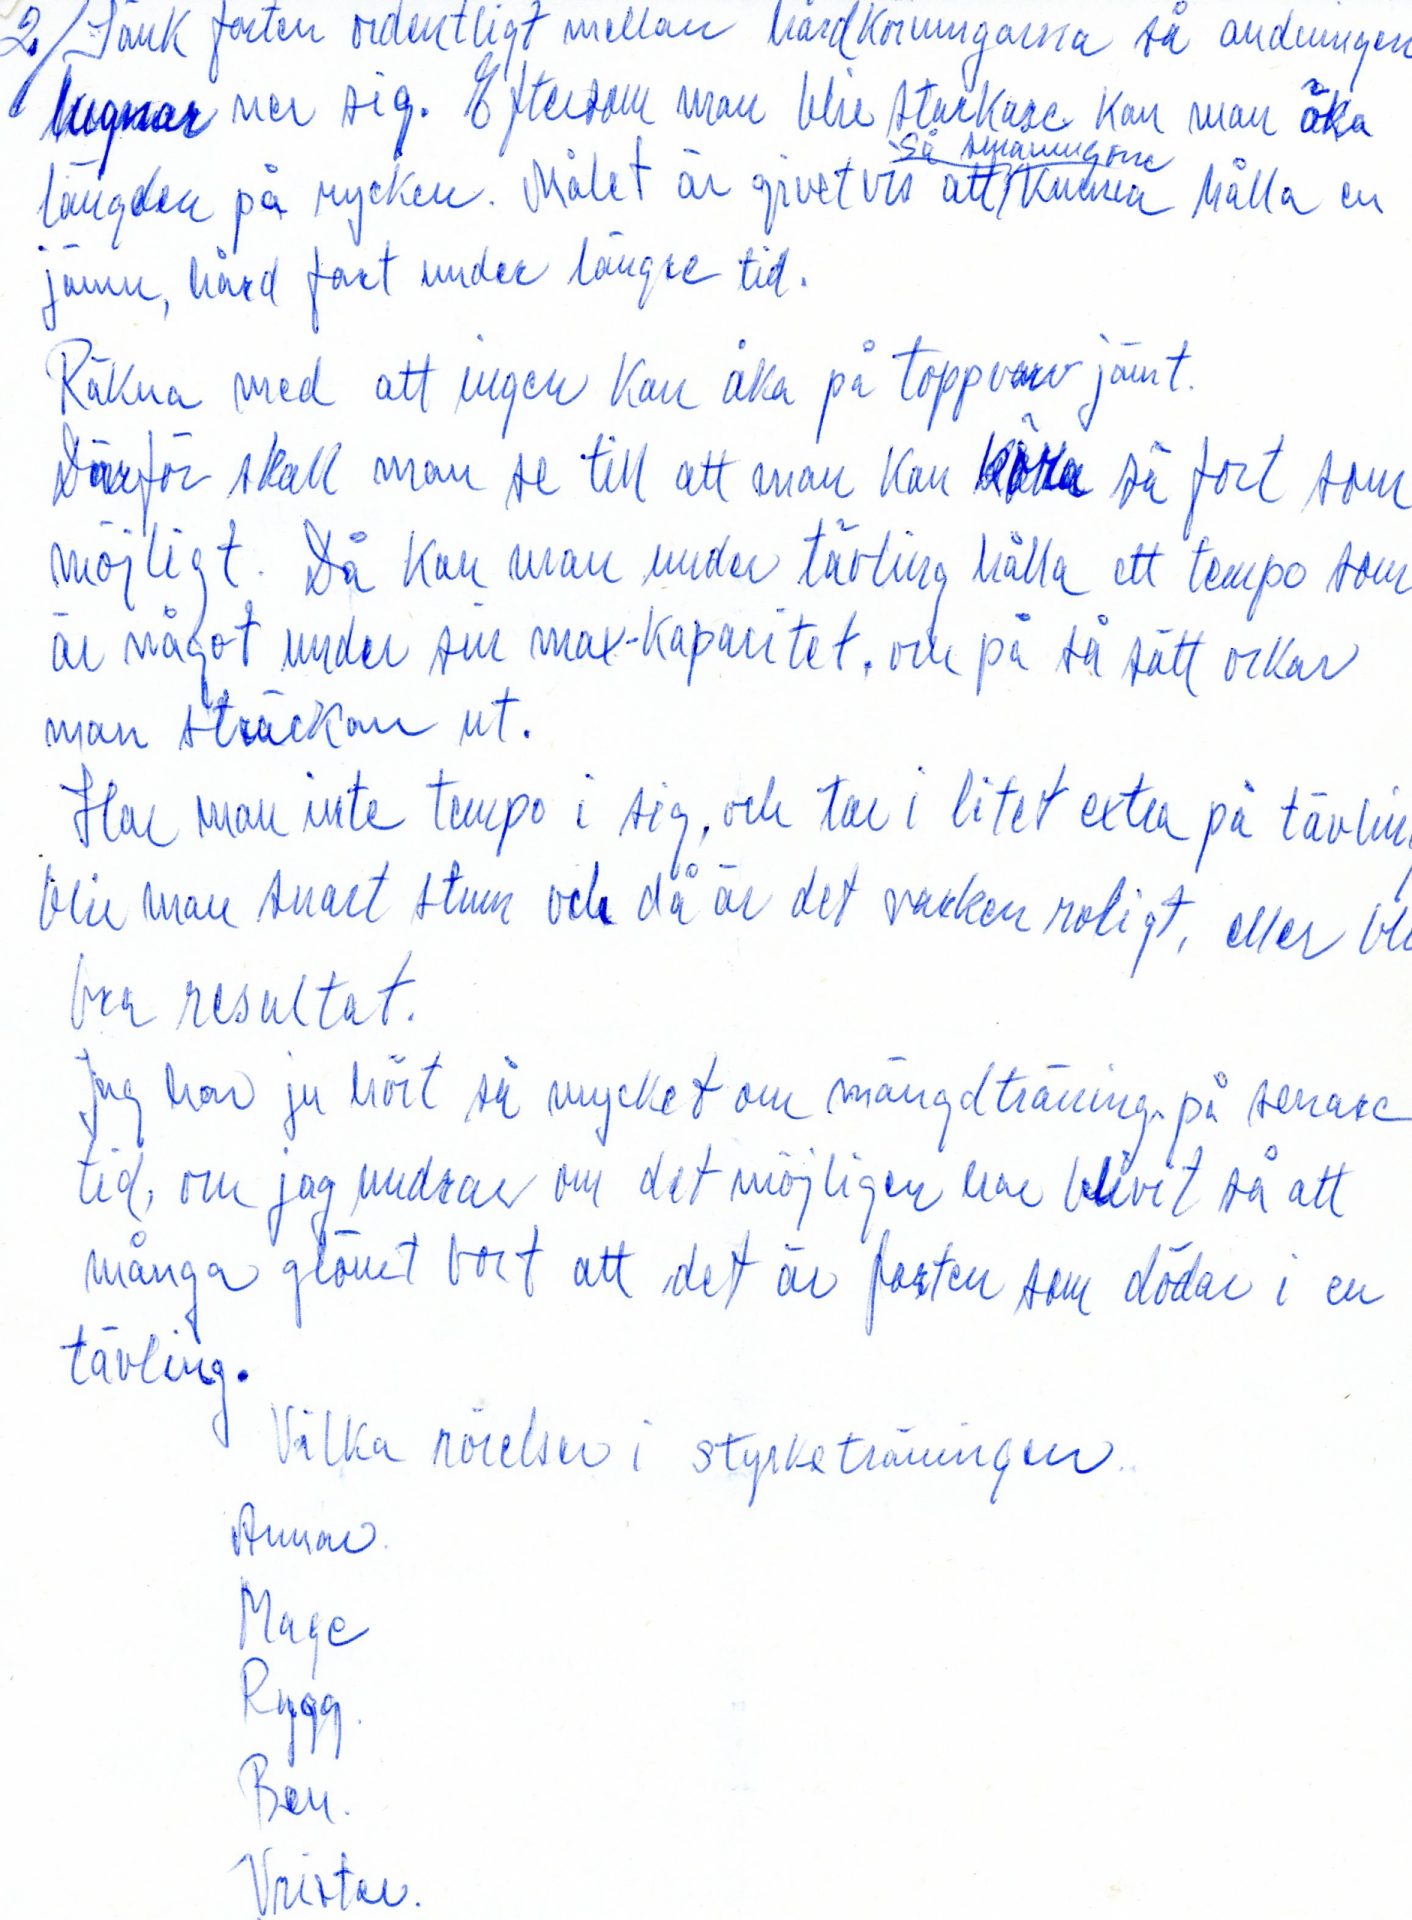 2/ Sänk farten ordentligt mellan hårdkörningarna så andningen
lugnar ner sig. Eftersom man blir starkare kan man öka
längden på rycken. Målet är givetvis att så småningom kunna hålla en
jämn, hård fart under längre tid.
Räkna med att ingen kan åka på toppvarv jämt.
Därför skall man se till att man kan köra så fort som
möjligt. Då kan man under tävling hålla ett tempo som
är något under sin max-kapacitet, om på så sätt orkar
man sträckan ut.
Har man inte tempo i sig, och tar i litet extra på tävling
blir man snart stum och då är det varken roligt, eller bli
bra resultat.
Jag har ju hört så mycket om mängdträning på senare
tid, om jag undrar om det möjligen har blivit så att
många glömt bort att det är farten som dödar i en
tävling.
Vilka rörelser i styrketräningen.
Armar.
Mage
Rygg.
Ben.
Vristar.